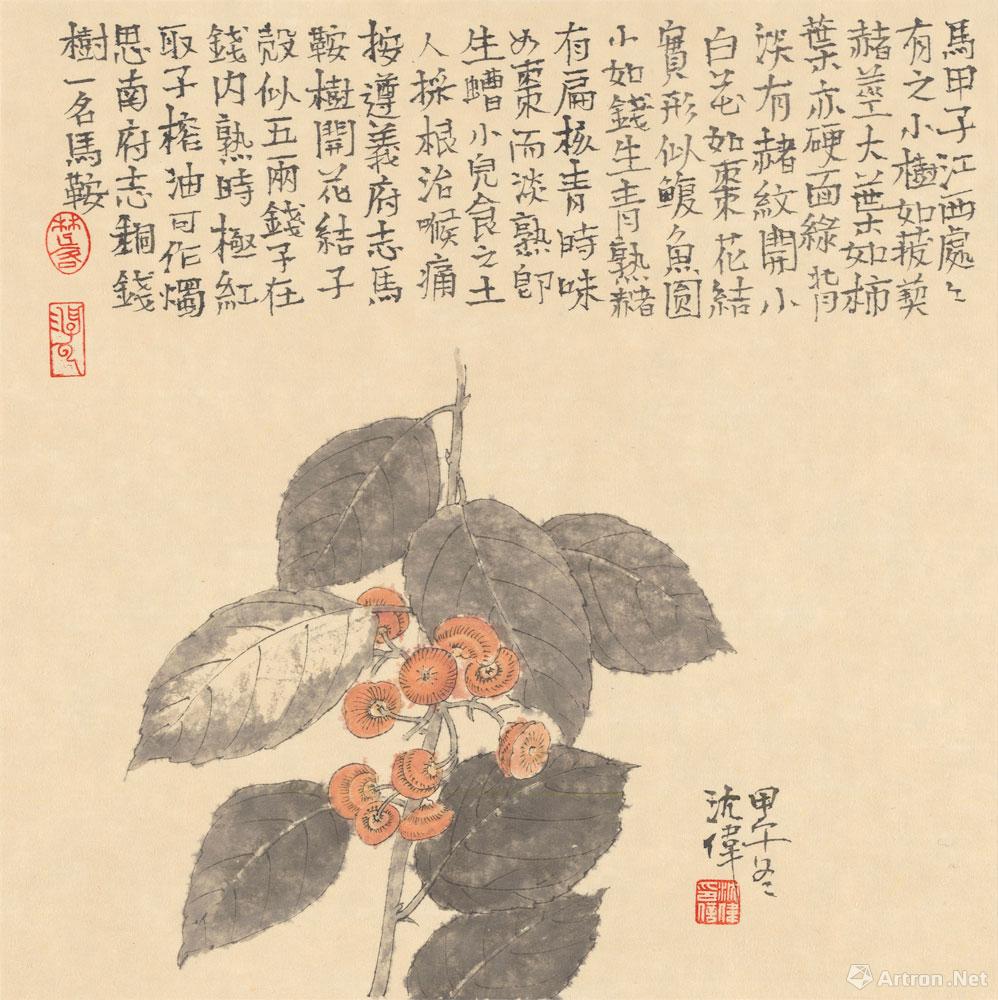 馬甲子江西處〻
有之小樹如菝葜
赭莖大葉如柿
葉亦硬面綠背
淡有赭紋開小
白花如棗花結
實形似鰒魚圓
小如錢生青熟赭
有扁核青時味
如棗而淡熟即
生螬小兒食之土
人採根治喉痛
按遵義府志馬
鞍樹開花結子
殼似五兩錢子在
錢内熟時極紅
取子榨油可作燭
思南府志銅錢
樹一名馬鞍
甲午冬
沈偉
Artron.Net